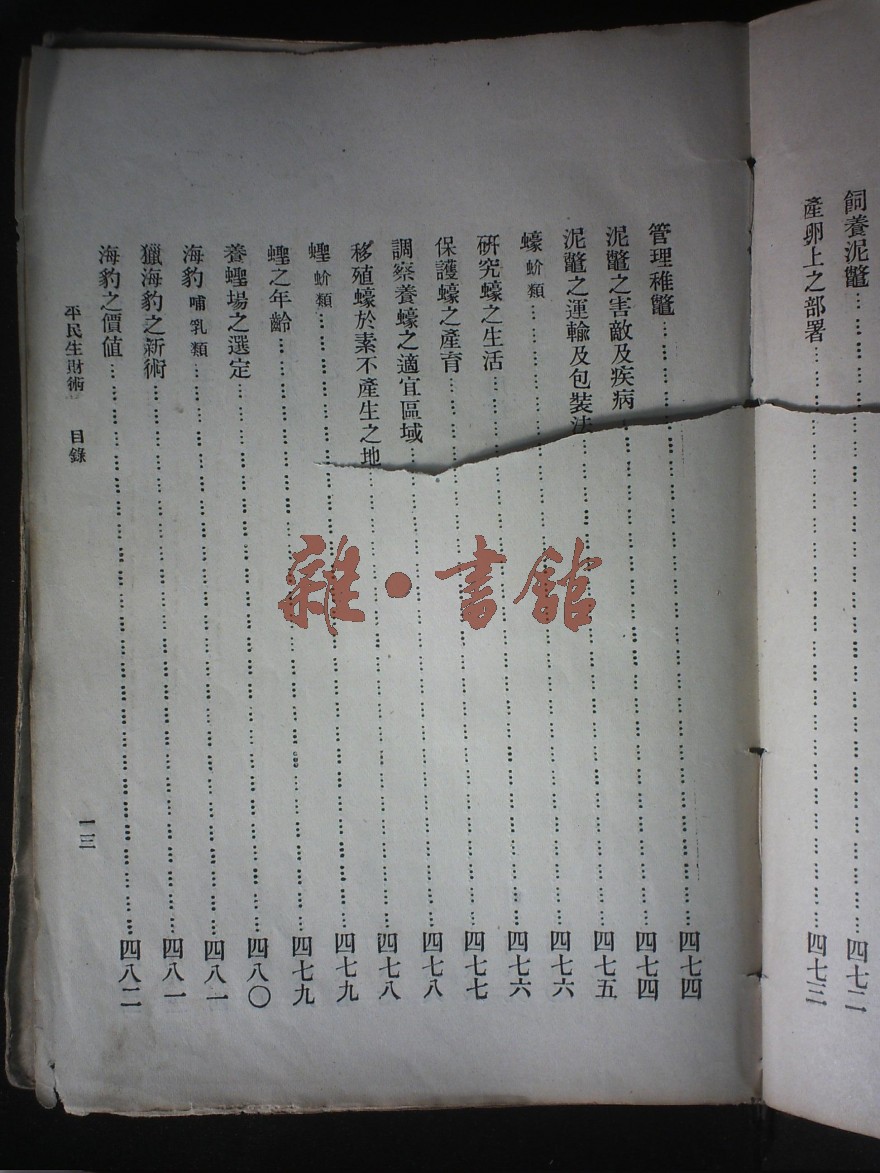 飼養泥鼈……四七二
產卵上之部署……四七三
管理稚鼈……四七四
泥鼈之害敵及疾病……四七四
泥鼈之運輸及包裝法……四七五
蠔 蚧類……四七六
研究蠔之生活……四七六
保護蠔之產育……四七七
調察養蠔之適宜區域……四七八
移殖蠔於素不產生之地……四七八
蟶 蚧類……四七九
蟶之年齡……四七九
養蟶場之選定……四八〇
海豹 哺乳類……四八一
獵海豹之新術……四八一
海豹之價値……四八二
平民生財術 目錄
一三
雜·書館